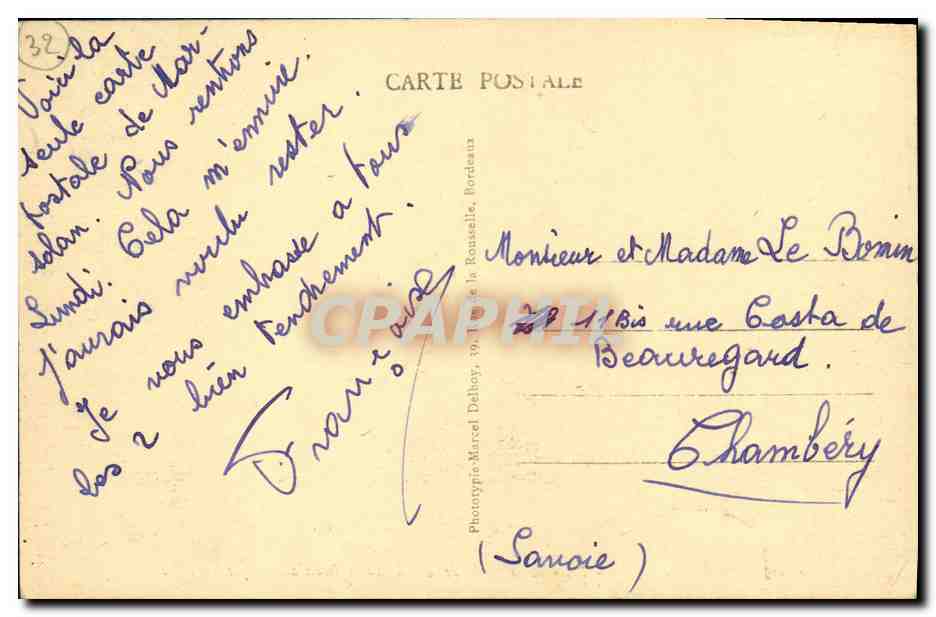 32
CARTE POSTALE
Voici la
seule carte
postale de Mar-
solan. Nous rentrons
Lundi. Cela m'ennuie.
J'aurais voulu rester.
Je vous embrasse a tous
les 2 bien tendrement.
Françoise
Phototypie Marcel Delboy, 39, de la Rousselle, Bordeaux
Monsieur et Madame Le Bonin
11 Bis rue Costa de
Beauregard.
Chambéry
(Savoie)
CPAPHIL